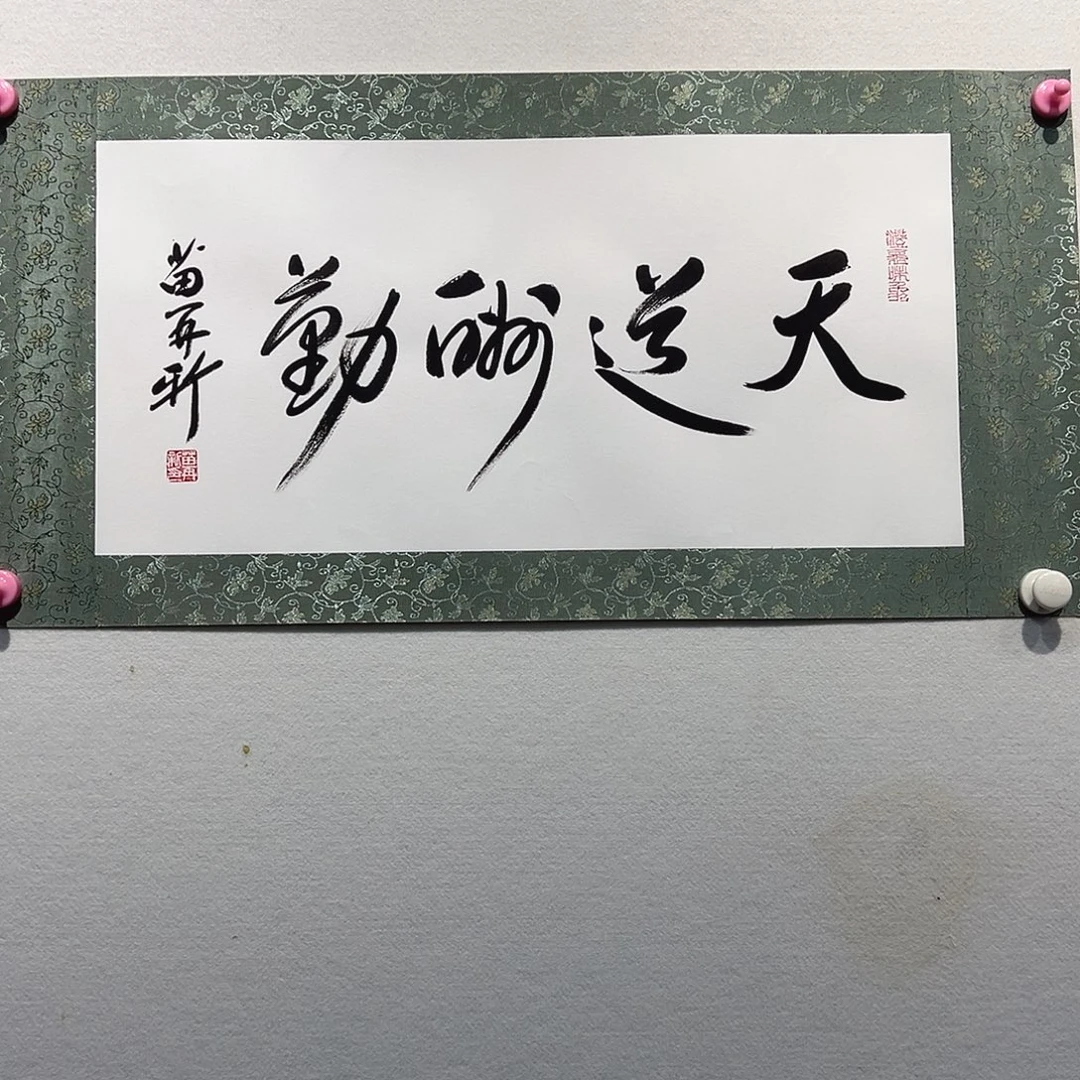 天道酬勤
苗再新